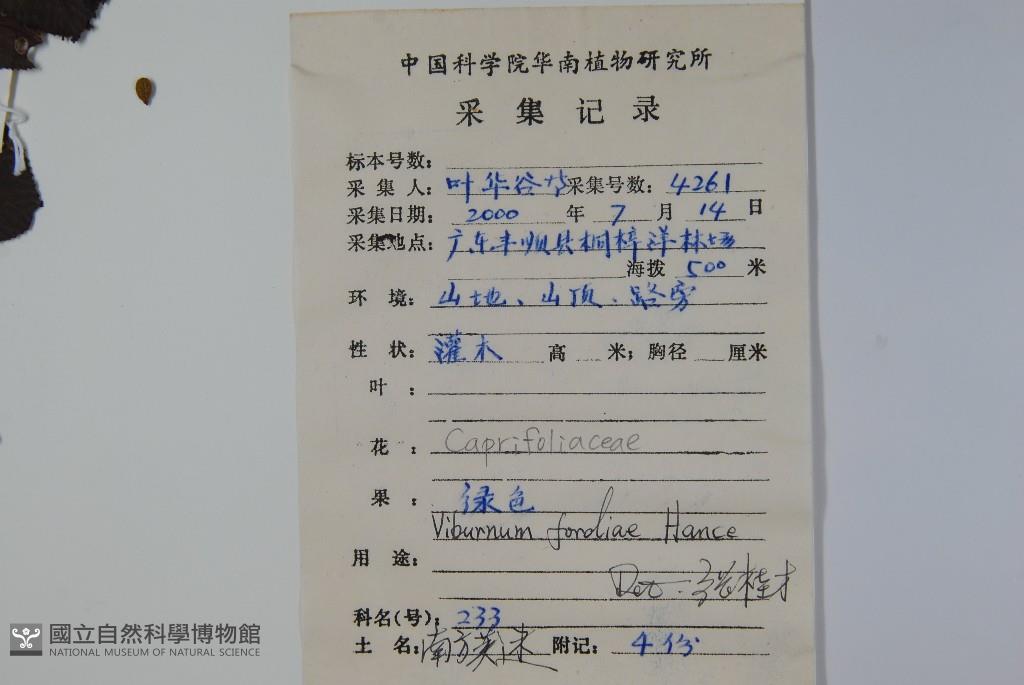 中国科学院华南植物研究所
采集记录
标本号数：
采集人：叶华谷 采集号数：4261
采集日期：2000年7月14日
采集地点：广东丰顺县桐梓洋林场
海拨 500 米
环境：山地、山顶、路旁
性状：灌木 高 米；胸径 厘米
叶：
花：Caprifoliaceae
果：绿色
Viburnum fordiae Hance
用途：
Det.
科名(号)：233
土名：南方荚迷 附记：4份
國立自然科學博物館
NATIONAL MUSEUM OF NATURAL SCIENCE